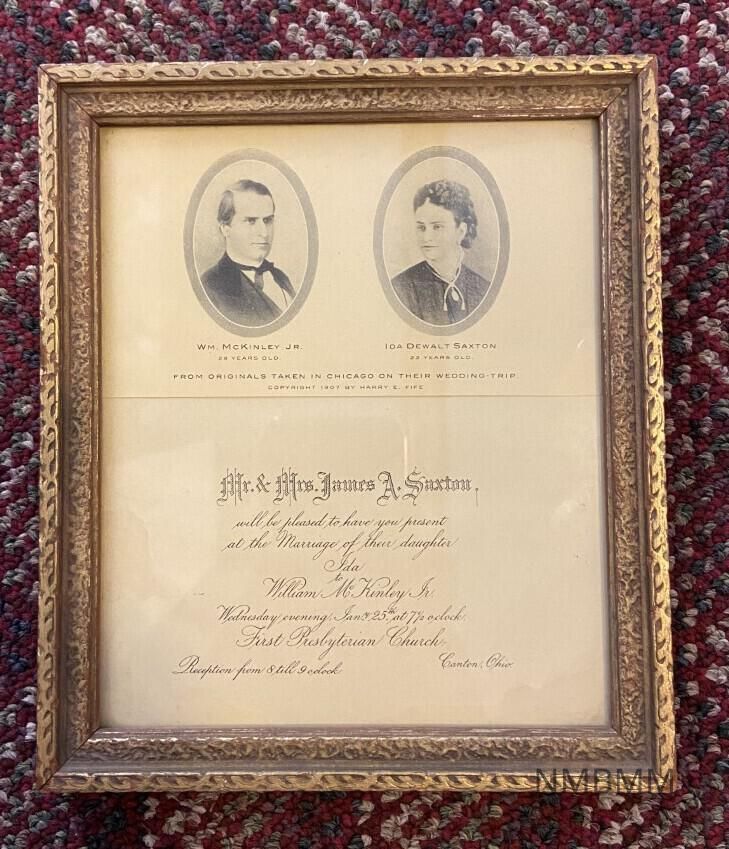 WM. MCKINLEY JR.
28 YEARS OLD.
IDA DEWALT SAXTON
22 YEARS OLD.
FROM ORIGINALS TAKEN IN CHICAGO ON THEIR WEDDING-TRIP
COPYRIGHT 1907 BY HARRY E. FIFE
Mr. & Mrs. James A. Saxton,
will be pleased to have you present
at the Marriage of their daughter
Ida
to
William McKinley Jr.
Wednesday evening, Jany. 25th at 7½ o,clock.
First Presbyterian Church,
Reception from 8 till 9 oclock
Canton, Ohio.
NMBMM